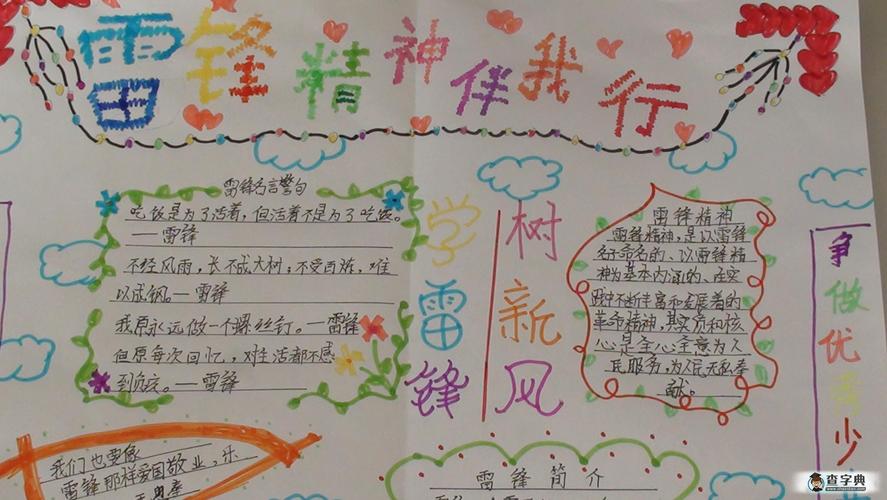 雷锋精神伴我行
雷锋名言警句
吃饭是为了活着，但活着不是为了吃饭。
——雷锋
不经风雨，长不成大树；不受百炼，难
以成钢。——雷锋
我愿永远做一个螺丝钉。——雷锋
但愿每次回忆，对生活都不感
到负疚。——雷锋
学雷锋
树新风
雷锋精神
雷锋精神，是以雷锋
名字命名的、以雷锋精
神为基本内涵的、在实
践中不断丰富和发展着的
革命精神，其实质和核
心是全心全意为人
民服务，为人民无私奉
献。
争做优秀少
我们也要像
雷锋那样爱国敬业，乐
雷锋简介
查字典